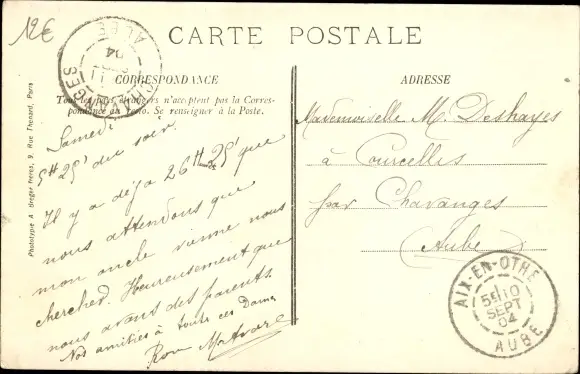 12€
CARTE POSTALE
CORRESPONDANCE
Tous les pays étrangers n'acceptent pas la Corres-
pondance au Verso. Se renseigner à la Poste.
Samedi
5H 25' du soir.
Il y a déjà 26H 25' que
nous attendons que
mon oncle vienne nous
chercher. Heureusement que
nous avons des parents.
Nos amitiés à toutes ces Dames
ADRESSE
Mademoiselle M. Deshayes
à Courcelles
par Chavanges
(Aube)
Phototypie A. Breger Frères, 9, Rue Thénard, Paris
CHAVANGES
11
04
AUBE
AIX-EN-OTHE
5E 10
SEPT
04
AUBE